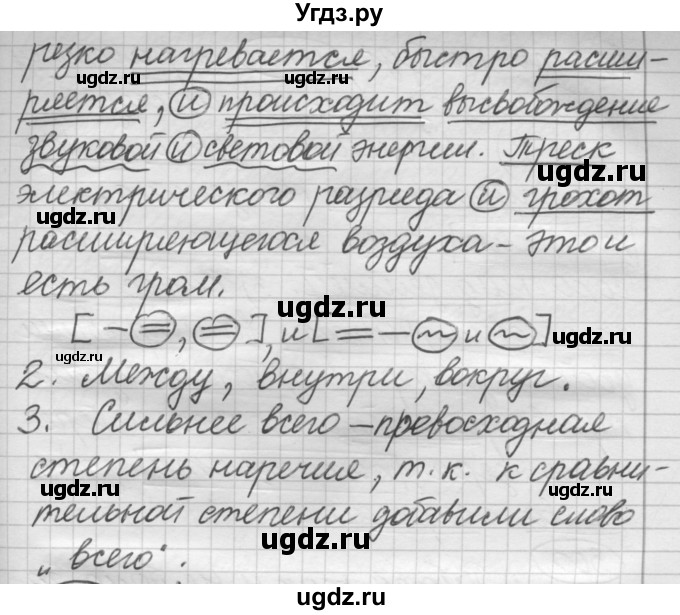 Угдз.ру
резко нагревается, быстро расши-
ряется, и происходит высвобождение
звуковой и световой энергии. Треск
электрического разряда и грохот
расширяющегося воздуха – это и
есть гром.
[ – =, = ], и [ = – ~ и ~ ]
2. Между, внутри, вокруг.
3. Сильнее всего – превосходная
степень наречия, т. к. к сравни-
тельной степени добавили слово
„всего“.
ugdz.ru
ugdz.ru
ugdz.ru
ugdz.ru
ugdz.ru
ugdz.ru
ugdz.ru
ugdz.ru
ugdz.ru
ugdz.ru
ugdz.ru
ugdz.ru
ugdz.ru
ugdz.ru